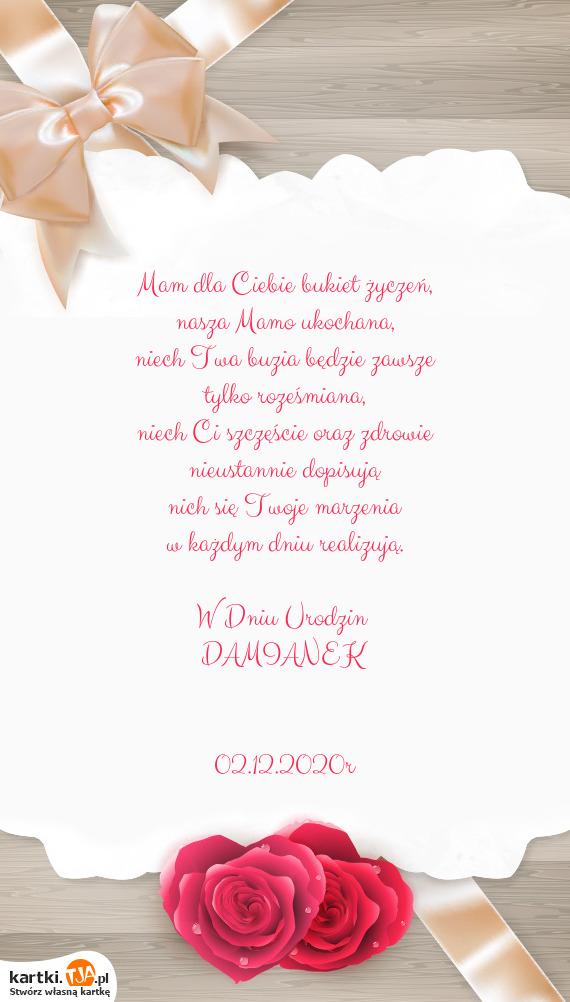 Mam dla Ciebie bukiet życzeń,
nasza Mamo ukochana,
niech Twa buzia będzie zawsze
tylko roześmiana,
niech Ci szczęście oraz zdrowie
nieustannie dopisują
nich się Twoje marzenia
w każdym dniu realizują.
W Dniu Urodzin
DAMIANEK
02.12.2020r
kartki.TJA.pl
Stwórz własną kartkę